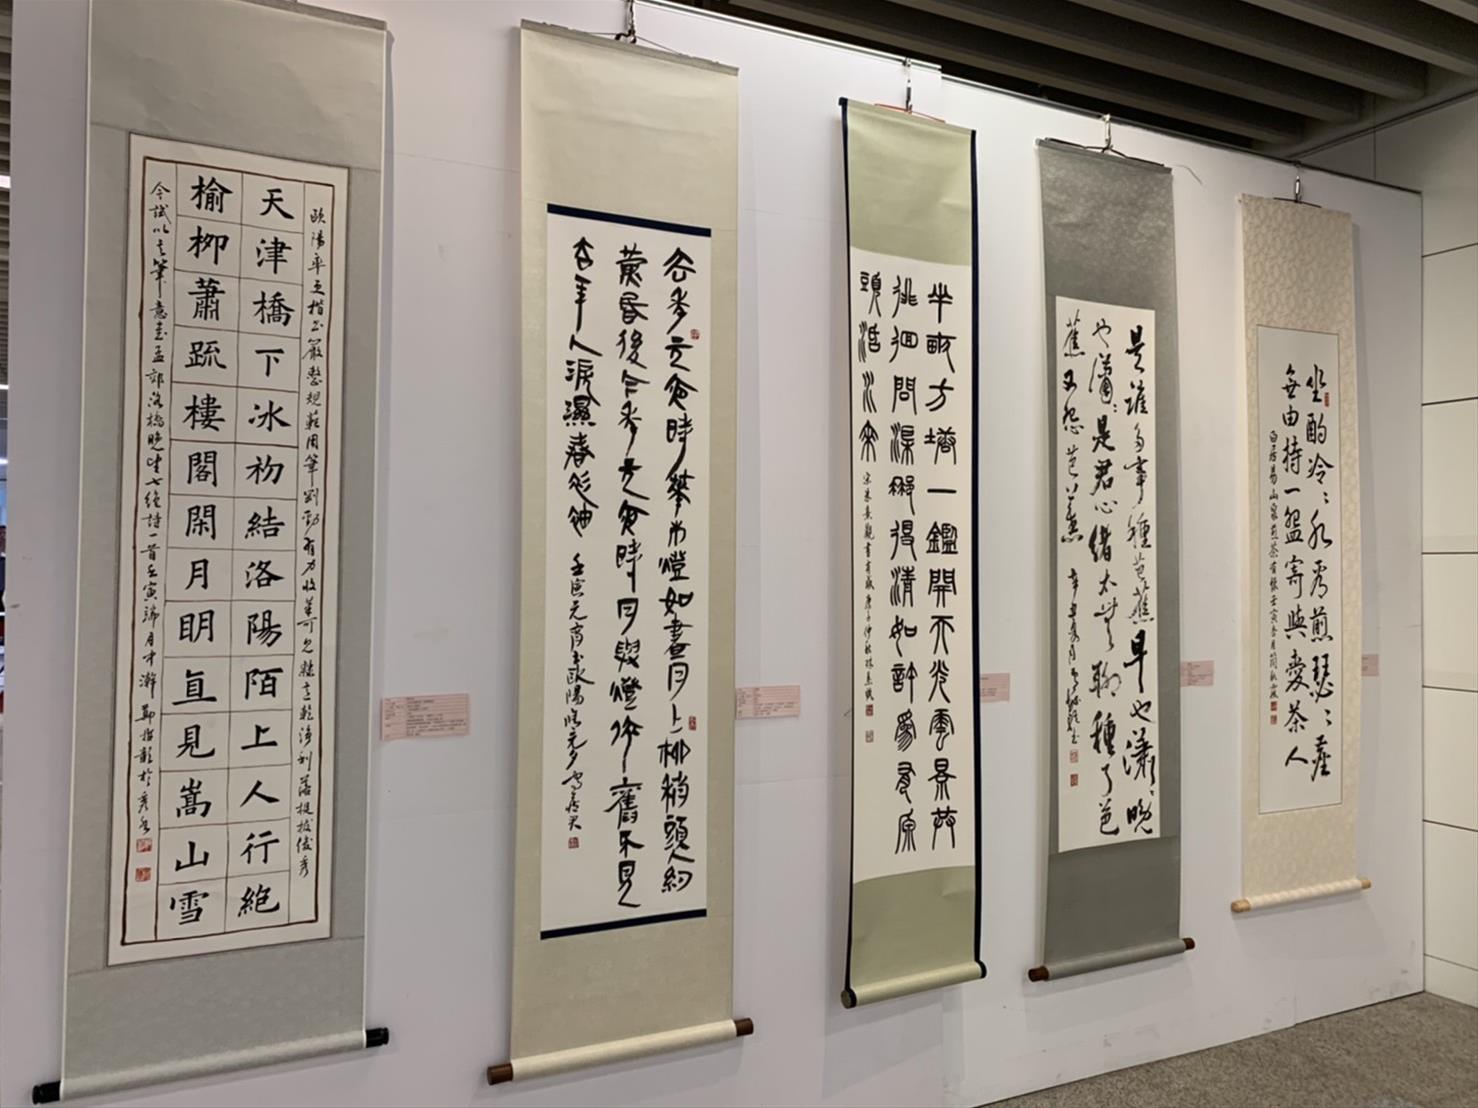 歐陽率更楷書嚴整規範用筆剄勁有力收筆可見隸意乾淨利落挺拔俊秀
天津橋下冰初結洛陽陌上人行絕
榆柳蕭疏樓閣閑月明直見嵩山雪
今試以其筆意書孟郊洛橋晚望七絕詩一首壬寅端月中澣鄭
去年元夜時華市燈如晝月上柳梢頭人約
黃昏後今年元夜時月與燈依舊不見
去年人淚濕春衫袖 壬寅元宵書歐陽脩元夕
半畝方塘一鑑開天光雲景共
徘徊問渠那得清如許為有源
頭活水來 宋朱熹觀書有感庚子仲秋
是誰多事種芭蕉早也瀟瀟晚
也瀟瀟是君心緒太無聊種了芭
蕉又怨芭蕉 辛丑
坐酌泠泠水看煎瑟瑟塵
無由持一盌寄與愛茶人
白居易山泉煎茶有懷壬寅